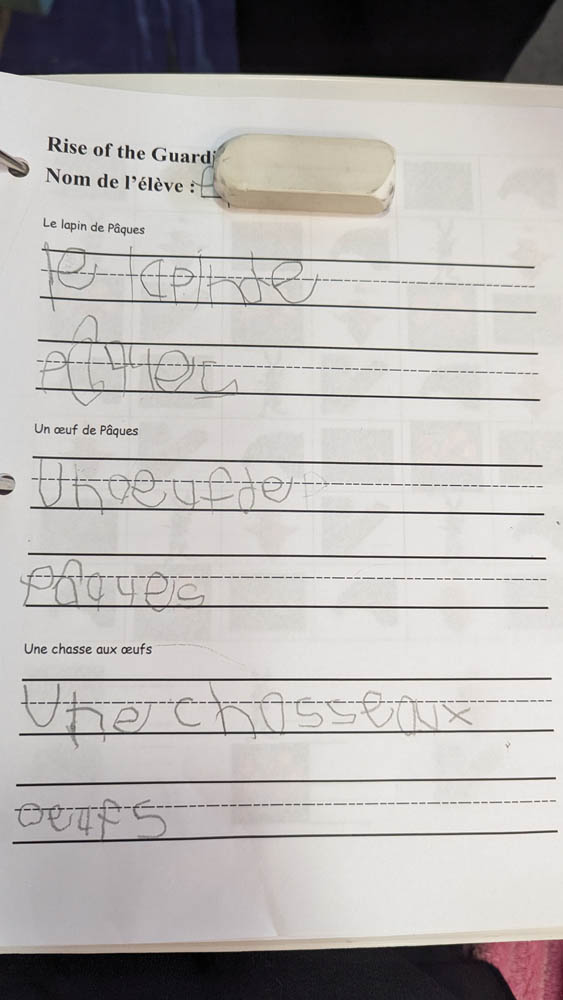 Rise of the Guardi
Nom de l'élève :
Le lapin de Pâques
le lapin de
pâques
Un œuf de Pâques
Un oeuf de
pâques
Une chasse aux œufs
Une chasse aux
oeufs